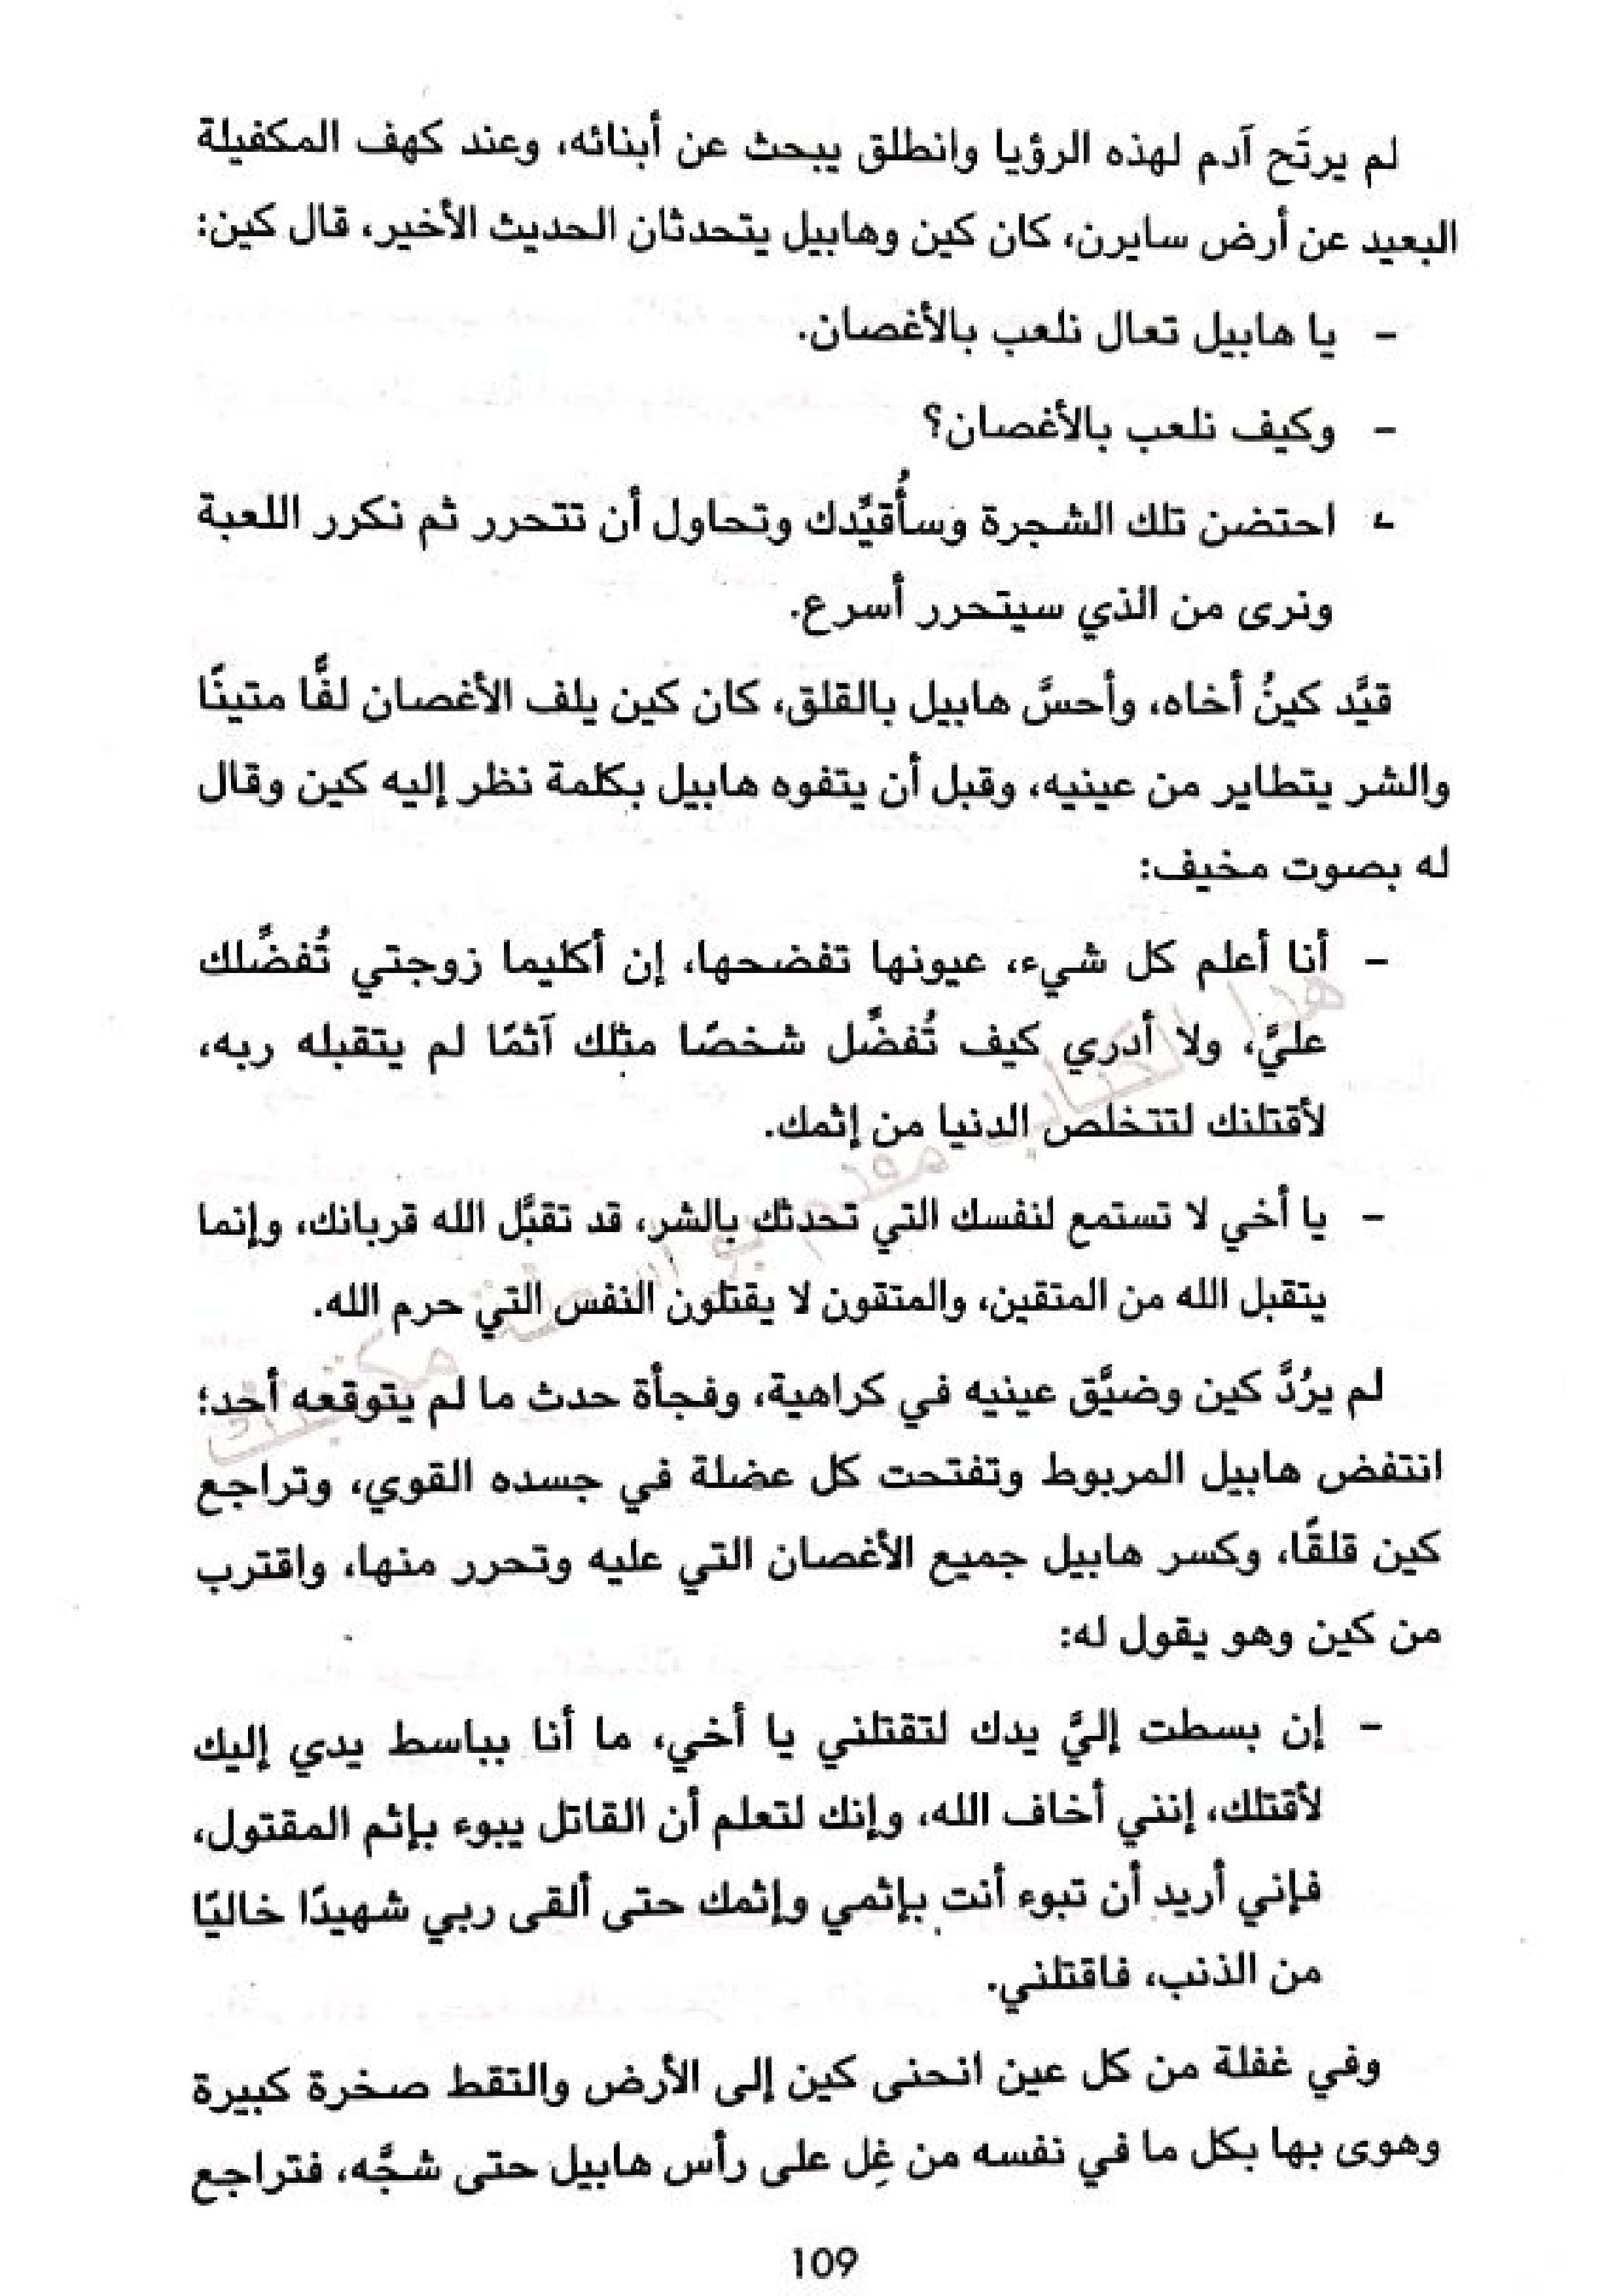 لم يرتَح آدم لهذه الرؤيا وانطلق يبحث عن أبنائه، وعند كهف المكفيلة
البعيد عن أرض سايرن، كان كين وهابيل يتحدثان الحديث الأخير، قال كين:
- يا هابيل تعال نلعب بالأغصان.
- وكيف نلعب بالأغصان؟
- احتضن تلك الشجرة وسأُقيِّدك وتحاول أن تتحرر ثم نكرر اللعبة
ونرى من الذي سيتحرر أسرع.
قيَّد كينُ أخاه، وأحسَّ هابيل بالقلق، كان كين يلف الأغصان لفًّا متينًا
والشر يتطاير من عينيه، وقبل أن يتفوه هابيل بكلمة نظر إليه كين وقال
له بصوت مخيف:
- أنا أعلم كل شيء، عيونها تفضحها، إن أكليما زوجتي تُفضِّلك
عليَّ، ولا أدري كيف تُفضِّل شخصًا مثلك آثمًا لم يتقبله ربه،
لأقتلنك لتتخلص الدنيا من إثمك.
- يا أخي لا تستمع لنفسك التي تحدثك بالشر، قد تقبَّل الله قربانك، وإنما
يتقبل الله من المتقين، والمتقون لا يقتلون النفس التي حرم الله.
لم يرُدَّ كين وضيَّق عينيه في كراهية، وفجأة حدث ما لم يتوقعه أحد؛
انتفض هابيل المربوط وتفتحت كل عضلة في جسده القوي، وتراجع
كين قلقًا، وكسر هابيل جميع الأغصان التي عليه وتحرر منها، واقترب
من كين وهو يقول له:
- إن بسطت إليَّ يدك لتقتلني يا أخي، ما أنا بباسط يدي إليك
لأقتلك، إنني أخاف الله، وإنك لتعلم أن القاتل يبوء بإثم المقتول،
فإني أريد أن تبوء أنت بإثمي وإثمك حتى ألقى ربي شهيدًا خاليًا
من الذنب، فاقتلني.
وفي غفلة من كل عين انحنى كين إلى الأرض والتقط صخرة كبيرة
وهوى بها بكل ما في نفسه من غِل على رأس هابيل حتى شجَّه، فتراجع
109
هذا الكتاب مقدم بواسطة مكتبتك